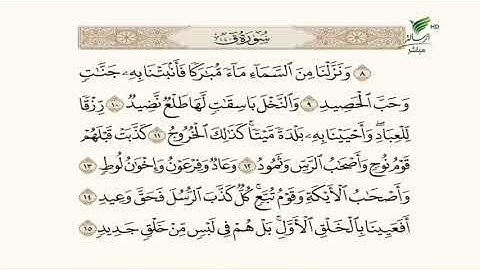 سورة ق
HD
الرسالة
مباشر
٨ وَنَزَّلْنَا مِنَ ٱلسَّمَآءِ مَآءً مُّبَٰرَكًا فَأَنۢبَتْنَا بِهِۦ جَنَّٰتٍ
وَحَبَّ ٱلْحَصِيدِ ٩ وَٱلنَّخْلَ بَاسِقَٰتٍ لَّهَا طَلْعٌ نَّضِيدٌ ١٠ رِّزْقًا
لِّلْعِبَادِ ۖ وَأَحْيَيْنَا بِهِۦ بَلْدَةً مَّيْتًا ۚ كَذَٰلِكَ ٱلْخُرُوجُ ١١ كَذَّبَتْ قَبْلَهُمْ
قَوْمُ نُوحٍ وَأَصْحَٰبُ ٱلرَّسِّ وَثَمُودُ ١٢ وَعَادٌ وَفِرْعَوْنُ وَإِخْوَٰنُ لُوطٍ ١٣
وَأَصْحَٰبُ ٱلْأَيْكَةِ وَقَوْمُ تُبَّعٍ ۚ كُلٌّ كَذَّبَ ٱلرُّسُلَ فَحَقَّ وَعِيدِ ١٤
أَفَعَيِينَا بِٱلْخَلْقِ ٱلْأَوَّلِ ۚ بَلْ هُمْ فِى لَبْسٍ مِّنْ خَلْقٍ جَدِيدٍ ١٥